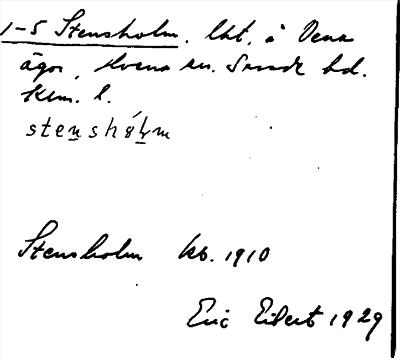 1-5 Stensholm. lht. å Vena
ägor, Hvena sn. Sevede hd.
Klm. l.
stensholm
Stensholm kb. 1910
Eric Eilert 1929